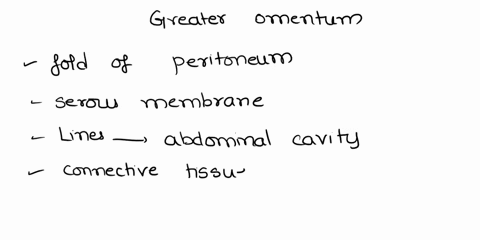 Greater omentum
- fold of peritoneum
- serous membrane
- Lines → abdominal cavity
- connective tissu